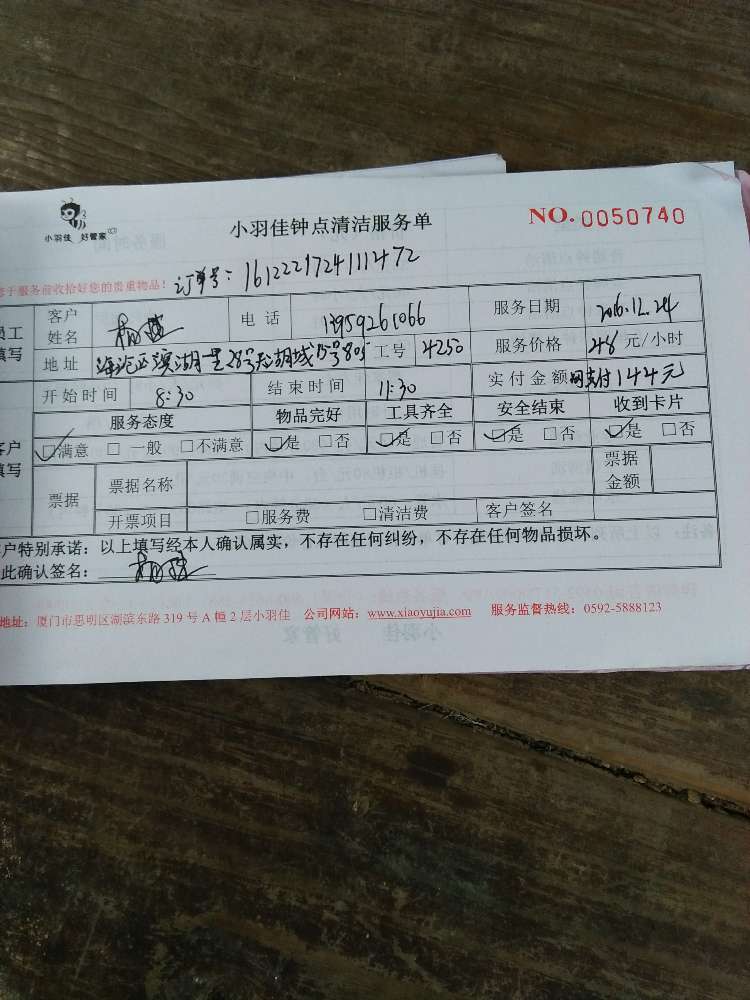 小羽佳 好管家
小羽佳钟点清洁服务单
NO. 0050740
于服务前收拾好您的贵重物品！ 订单号：1612221724111472
员工填写 客户姓名 电话 13959261066 服务日期 2016.12.24
地址 海沧区滨湖一里28号 工号 4250 服务价格 48 元/小时
开始时间 8:30 结束时间 11:30 实付金额 网支付144元
客户填写 服务态度 物品完好 工具齐全 安全结束 收到卡片
☑满意 □一般 □不满意 ☑是 □否 ☑是 □否 ☑是 □否 ☑是 □否
票据 票据名称 票据金额
开票项目 □服务费 □清洁费 客户签名
户特别承诺：以上填写经本人确认属实，不存在任何纠纷，不存在任何物品损坏。
此确认签名：
地址：厦门市思明区湖滨东路 319 号 A 幢 2 层小羽佳 公司网站：www.xiaoyujia.com 服务监督热线：0592-5888123